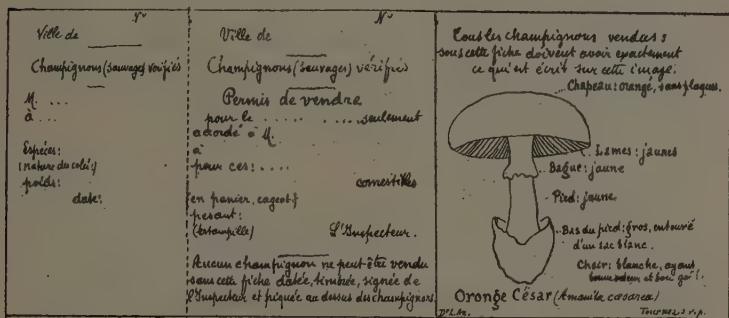 Ville de
Nº
Champignons (Sauvages) vérifiés
M. ...
à ...
Espèces:
(nature du colis:)
poids:
date:
Nº
Ville de
Champignons (sauvages) vérifiés
Permis de vendre
pour le ..... ..... seulement
accordé à M.
à
pour ces: ....
comestibles
en panier, cageot}
pesant:
(estampille) L'Inspecteur.
Aucun champignon ne peut être vendu
sans cette fiche datée, timbrée, signée de
l'Inspecteur et piquée au dessus des champignons.
Tous les champignons vendus :
sous cette fiche doivent avoir exactement
ce qui est écrit sur cette image:
Chapeau: orangé, sans plaques.
Lames: jaunes
Bague: jaune
Pied: jaune
Bas du pied: gros, entouré
d'un sac blanc.
Chair: blanche, ayant
bonne odeur et bon goût.
Oronge César (Amanita cæsarea)
Dr L. Az.